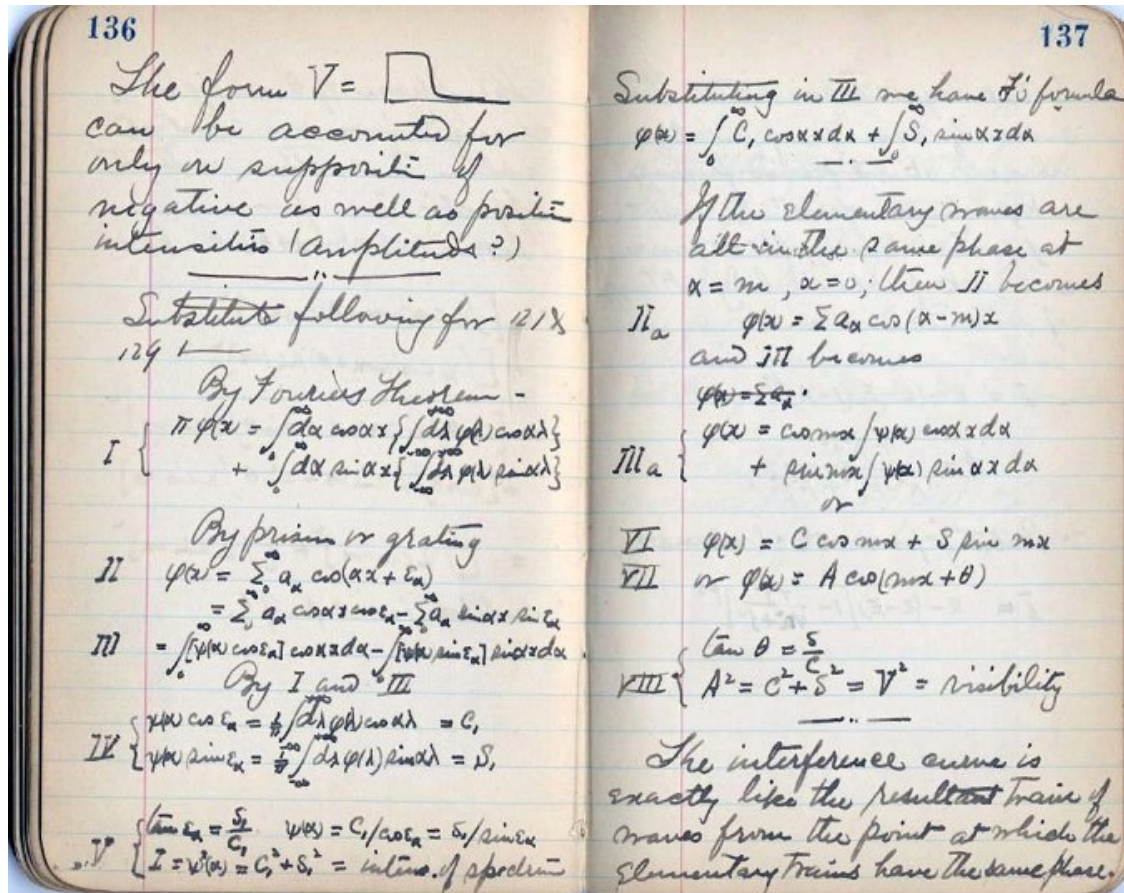 136
The form V =
can be accounted for
only on suppositi of
negative as well as positive
intensities (Amplituds?)
Substitute following for 121 &
129
By Fouriers Theorem -
I { π φ(x) = ∫₀^∞ dα cos αx {∫₋∞^+∞ dλ φ(λ) cos αλ}
+ ∫₀^∞ dα sin αx {∫₋∞^+∞ dλ φ(λ) sin αλ}
By prism or grating
II φ(x) = Σ₀^∞ a_α cos(αx + ε_α)
= Σ₀^∞ a_α cos αx cos ε_α - Σ₀^∞ a_α sin αx sin ε_α
III = ∫₀^∞ [ψ(α) cos ε_α] cos αx dα - ∫₀^∞ [ψ(α) sin ε_α] sin αx dα
By I and III
IV { ψ(α) cos ε_α = 1/π ∫₋∞^+∞ dλ φ(λ) cos αλ = C₁
ψ(α) sin ε_α = 1/π ∫₋∞^+∞ dλ φ(λ) sin αλ = S₁
V { tan ε_α = S₁/C₁ ψ(α) = C₁/cos ε_α = S₁/sin ε_α
I = ψ²(α) = C₁² + S₁² = intens. of spectrum
137
Substituting in III we have F's formula
φ(x) = ∫₀^∞ C₁ cos αx dα + ∫₀^∞ S₁ sin αx dα
If the elementary waves are
all in the same phase at
α = m, x = 0; then II becomes
II_a φ(x) = Σ a_α cos(α-m)x
and III becomes
φ(x) = Σ a_α
III_a { φ(x) = cos mx ∫ψ(α) cos αx dα
+ sin mx ∫ψ(α) sin αx dα
or
VI φ(x) = C cos mx + S sin mx
VII or φ(x) = A cos(mx + θ)
VIII { tan θ = S/C
A² = C² + S² = V² = visibility
The interference curve is
exactly like the resultant train of
waves from the point at which the
elementary trains have the same phase.